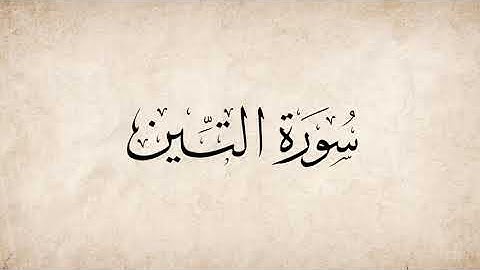 سُورَة التِّين